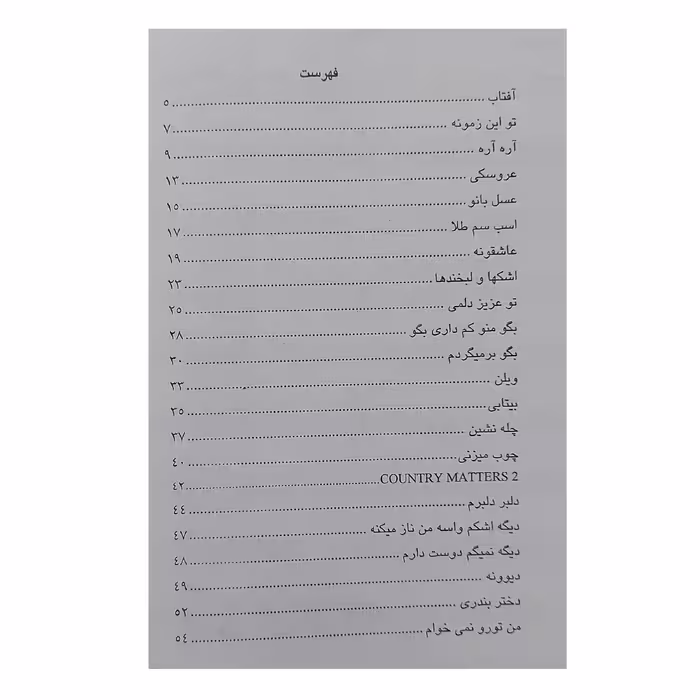 فهرست
آفتاب ........ ٥
تو این زمونه ........ ٧
آره آره ........ ٩
عروسکی ........ ١٣
عسل بانو ........ ١٥
اسب سم طلا ........ ١٧
عاشقونه ........ ١٩
اشکها و لبخندها ........ ٢٣
تو عزیز دلمی ........ ٢٥
بگو منو کم داری بگو ........ ٢٨
بگو برمیگردم ........ ٣٠
ویلن ........ ٣٣
بیتابی ........ ٣٥
چله نشین ........ ٣٧
چوب میزنی ........ ٤٠
COUNTRY MATTERS 2 ........ ٤٢
دلبر دلبرم ........ ٤٤
دیگه اشکم واسه من ناز میکنه ........ ٤٧
دیگه نمیگم دوست دارم ........ ٤٨
دیوونه ........ ٤٩
دختر بندری ........ ٥٢
من تورو نمی خوام ........ ٥٤